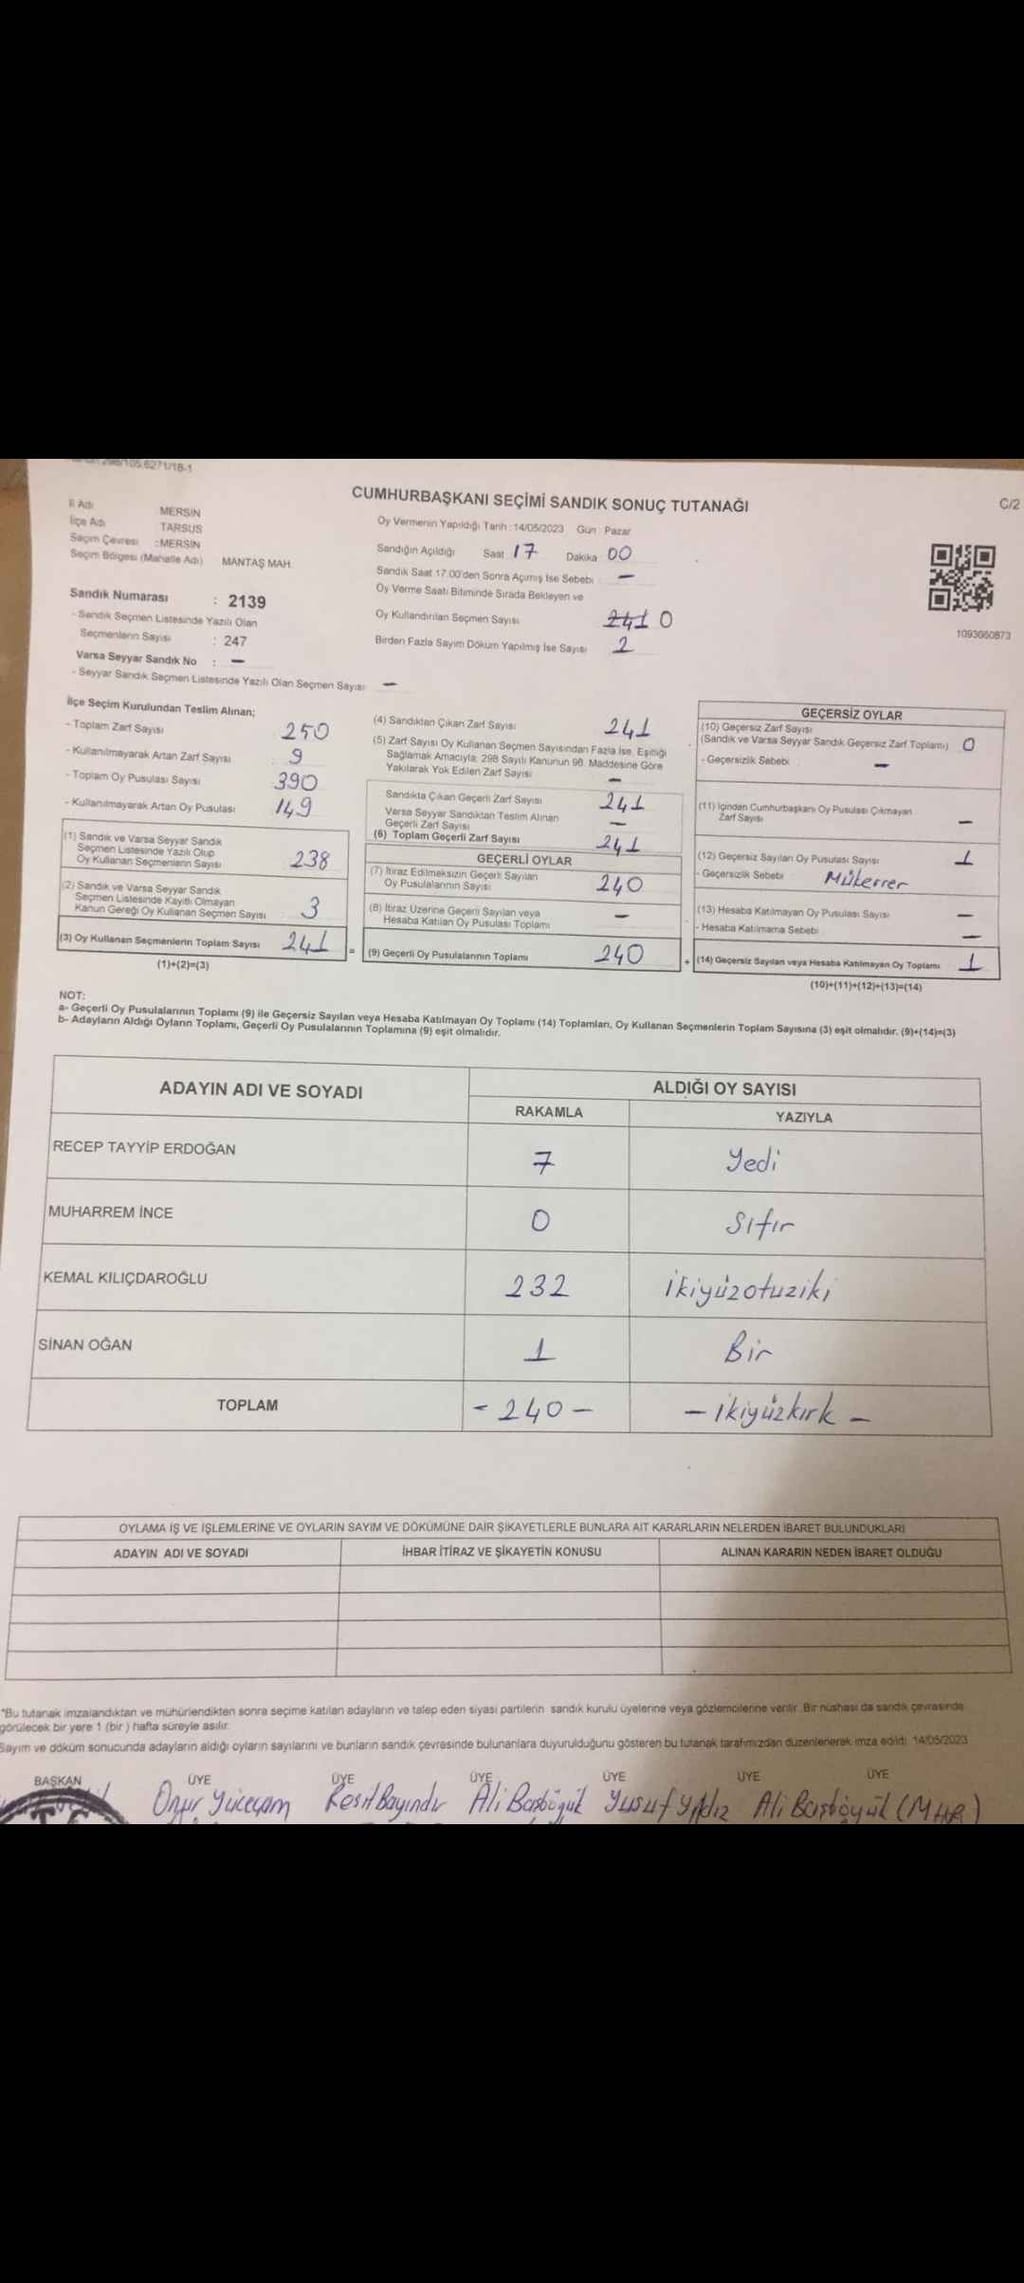 298/105.6271/18-1
C/2
CUMHURBAŞKANI SEÇİMİ SANDIK SONUÇ TUTANAĞI
İl Adı MERSİN
İlçe Adı TARSUS
Seçim Çevresi :MERSİN
Seçim Bölgesi (Mahalle Adı) MANTAŞ MAH.
Sandık Numarası : 2139
- Sandık Seçmen Listesinde Yazılı Olan
Seçmenlerin Sayısı : 247
Varsa Seyyar Sandık No : —
- Seyyar Sandık Seçmen Listesinde Yazılı Olan Seçmen Sayısı —
Oy Vermenin Yapıldığı Tarih :14/05/2023 Gün : Pazar
Sandığın Açıldığı Saat 17 Dakika 00
Sandık Saat 17.00'den Sonra Açımış İse Sebebi : —
Oy Verme Saati Bitiminde Sırada Bekleyen ve
Oy Kullandırılan Seçmen Sayısı 241 0
Birden Fazla Sayım Döküm Yapılmış İse Sayısı 2
1093660873
İlçe Seçim Kurulundan Teslim Alınan;
- Toplam Zarf Sayısı 250
- Kullanılmayarak Artan Zarf Sayısı 9
- Toplam Oy Pusulası Sayısı 390
- Kullanılmayarak Artan Oy Pusulası 149
(1) Sandık ve Varsa Seyyar Sandık
Seçmen Listesinde Yazılı Olup
Oy Kullanan Seçmenlerin Sayısı 238
(2) Sandık ve Varsa Seyyar Sandık
Seçmen Listesinde Kayıtlı Olmayan
Kanun Gereği Oy Kullanan Seçmen Sayısı 3
(3) Oy Kullanan Seçmenlerin Toplam Sayısı 241 =
(1)+(2)=(3)
(4) Sandıktan Çıkan Zarf Sayısı 241
(5) Zarf Sayısı Oy Kullanan Seçmen Sayısından Fazla İse, Eşitliği
Sağlamak Amacıyla; 298 Sayılı Kanunun 98. Maddesine Göre
Yakılarak Yok Edilen Zarf Sayısı —
Sandıkta Çıkan Geçerli Zarf Sayısı 241
Varsa Seyyar Sandıktan Teslim Alınan
Geçerli Zarf Sayısı —
(6) Toplam Geçerli Zarf Sayısı 241
GEÇERLİ OYLAR
(7) İtiraz Edilmeksizin Geçerli Sayılan
Oy Pusulalarının Sayısı 240
(8) İtiraz Üzerine Geçerli Sayılan veya
Hesaba Katılan Oy Pusulası Toplamı —
(9) Geçerli Oy Pusulalarının Toplamı 240 +
GEÇERSİZ OYLAR
(10) Geçersiz Zarf Sayısı
(Sandık ve Varsa Seyyar Sandık Geçersiz Zarf Toplamı) 0
- Geçersizlik Sebebi —
(11) İçinden Cumhurbaşkanı Oy Pusulası Çıkmayan
Zarf Sayısı —
(12) Geçersiz Sayılan Oy Pusulası Sayısı 1
- Geçersizlik Sebebi Mükerrer
(13) Hesaba Katılmayan Oy Pusulası Sayısı —
- Hesaba Katılmama Sebebi —
(14) Geçersiz Sayılan veya Hesaba Katılmayan Oy Toplamı 1
(10)+(11)+(12)+(13)=(14)
NOT:
a- Geçerli Oy Pusulalarının Toplamı (9) ile Geçersiz Sayılan veya Hesaba Katılmayan Oy Toplamı (14) Toplamları, Oy Kullanan Seçmenlerin Toplam Sayısına (3) eşit olmalıdır. (9)+(14)=(3)
b- Adayların Aldığı Oyların Toplamı, Geçerli Oy Pusulalarının Toplamına (9) eşit olmalıdır.
ADAYIN ADI VE SOYADI ALDIĞI OY SAYISI
RAKAMLA YAZIYLA
RECEP TAYYİP ERDOĞAN 7 Yedi
MUHARREM İNCE 0 Sıfır
KEMAL KILIÇDAROĞLU 232 ikiyüzotuziki
SİNAN OĞAN 1 Bir
TOPLAM - 240 - - ikiyüzkırk -
OYLAMA İŞ VE İŞLEMLERİNE VE OYLARIN SAYIM VE DÖKÜMÜNE DAİR ŞİKAYETLERLE BUNLARA AİT KARARLARIN NELERDEN İBARET BULUNDUKLARI
ADAYIN ADI VE SOYADI İHBAR İTİRAZ VE ŞİKAYETİN KONUSU ALINAN KARARIN NEDEN İBARET OLDUĞU
*Bu tutanak imzalandıktan ve mühürlendikten sonra seçime katılan adayların ve talep eden siyasi partilerin sandık kurulu üyelerine veya gözlemcilerine verilir. Bir nüshası da sandık çevresinde
görülecek bir yere 1 (bir ) hafta süreyle asılır.
Sayım ve döküm sonucunda adayların aldığı oyların sayılarını ve bunların sandık çevresinde bulunanlara duyurulduğunu gösteren bu tutanak tarafımızdan düzenlenerek imza edildi. 14/05/2023
BAŞKAN ÜYE ÜYE ÜYE ÜYE ÜYE ÜYE
Onur Yüceçam Reşit Bayındır Ali Başböyük Yusuf Yıldız Ali Başböyük (MHP)